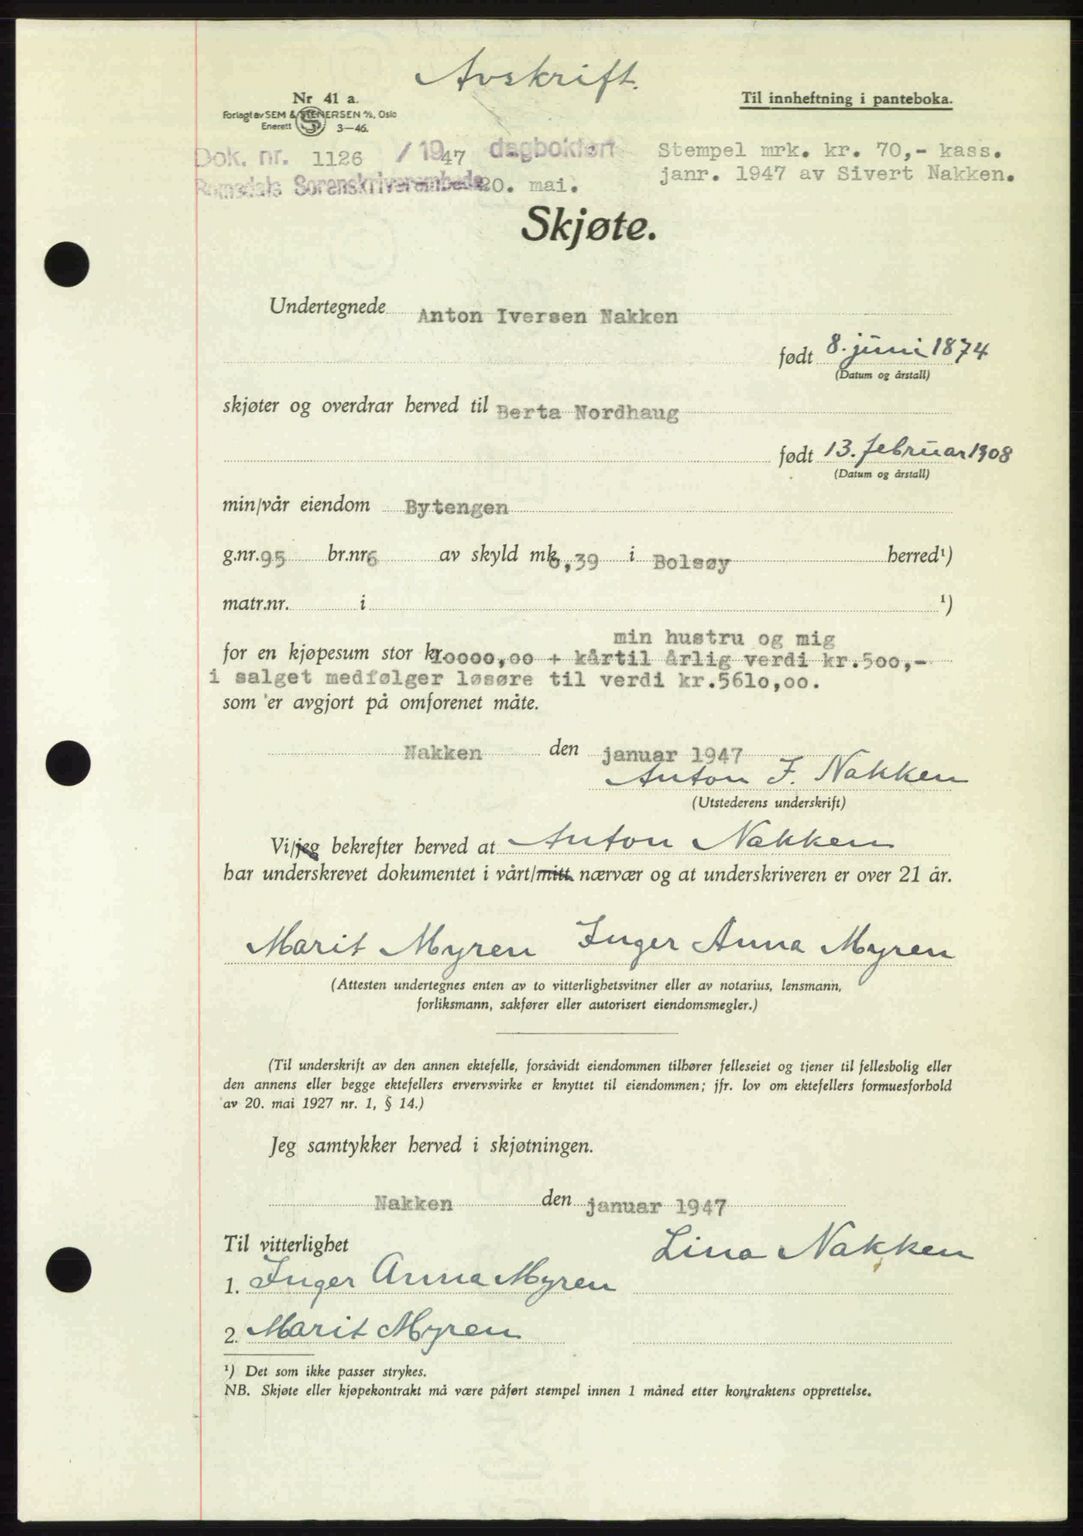 Avskrift.
Nr 41 a.
Til innheftning i panteboka.
Forlagt av SEM & STENERSEN A/S, Oslo
Enerett 3—46.
Dok. nr. 1126 / 1947 dagbokført
Stempel mrk. kr. 70,- kass.
Romsdals Sorenskriverembede 20. mai.
janr. 1947 av Sivert Nakken.
Skjøte.
Undertegnede Anton Iversen Nakken
født 8. juni 1874
(Datum og årstall)
skjøter og overdrar herved til Berta Nordhaug
født 13. februar 1908
(Datum og årstall)
min/vår eiendom Bytengen
g.nr. 95 br.nr 6 av skyld mk 6,39 i Bolsøy herred¹)
matr.nr. i ¹)
min hustru og mig
for en kjøpesum stor kr. 10000,00 + kårtil årlig verdi kr.500,-
i salget medfølger løsøre til verdi kr.5610,00.
som er avgjort på omforenet måte.
Nakken den januar 1947
Anton I. Nakken
(Utstederens underskrift)
Vi/jeg bekrefter herved at Anton Nakken
har underskrevet dokumentet i vårt/mitt nærvær og at underskriveren er over 21 år.
Marit Myren Inger Anna Myren
(Attesten undertegnes enten av to vitterlighetsvitner eller av notarius, lensmann,
forliksmann, sakfører eller autorisert eiendomsmegler.)
(Til underskrift av den annen ektefelle, forsåvidt eiendommen tilhører felleseiet og tjener til fellesbolig eller
den annens eller begge ektefellers ervervsvirke er knyttet til eiendommen; jfr. lov om ektefellers formuesforhold
av 20. mai 1927 nr. 1, § 14.)
Jeg samtykker herved i skjøtningen.
Nakken den januar 1947
Til vitterlighet
Lina Nakken
1. Inger Anna Myren
2. Marit Myren
¹) Det som ikke passer strykes.
NB. Skjøte eller kjøpekontrakt må være påført stempel innen 1 måned etter kontraktens opprettelse.